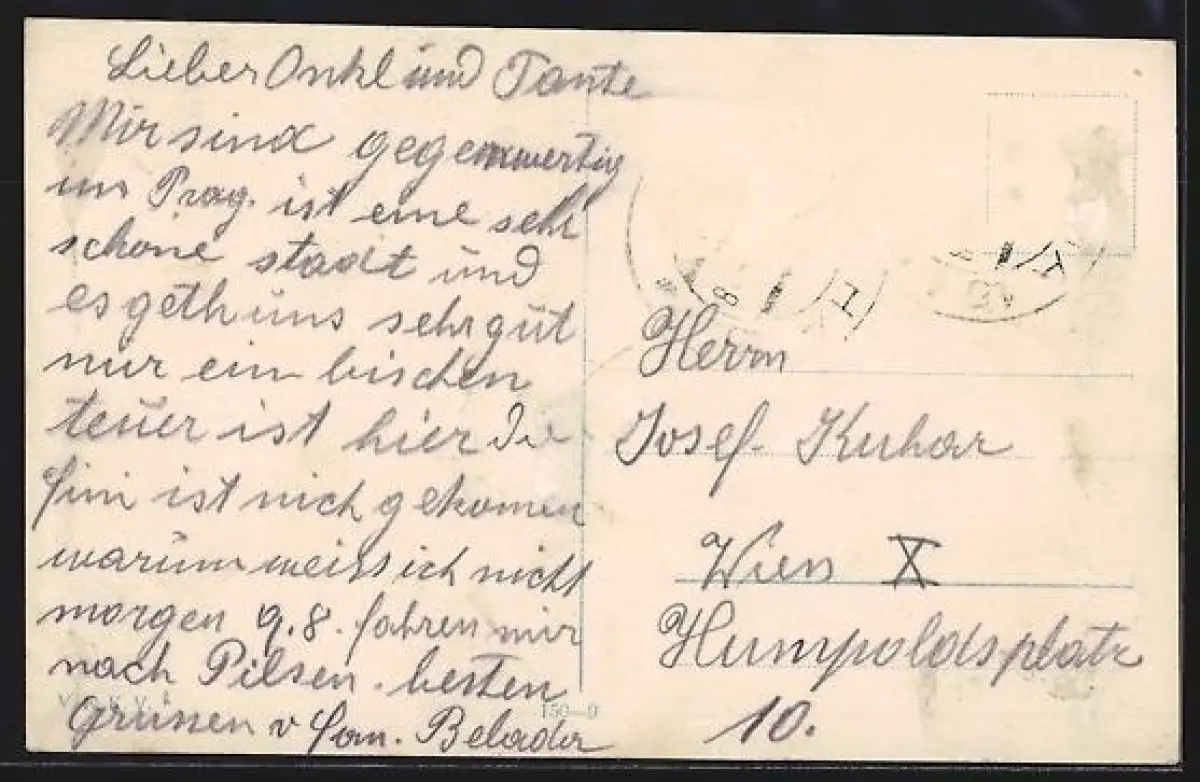 Lieber Onkl und Tante
Mir sind gegenwertig
in Prag. ist eine sehr
schöne stadt und
es geth uns sehr gut
nur ein bischen
teuer ist hier Die
Fini ist nich gekomen
warum weiss ich nicht
morgen 9.8. fahren mir
nach Pilsen. besten
Grüsen v Fam.
150-9
Herrn
Josef Kuhar
Wien X
Humpoldsplatz
10.